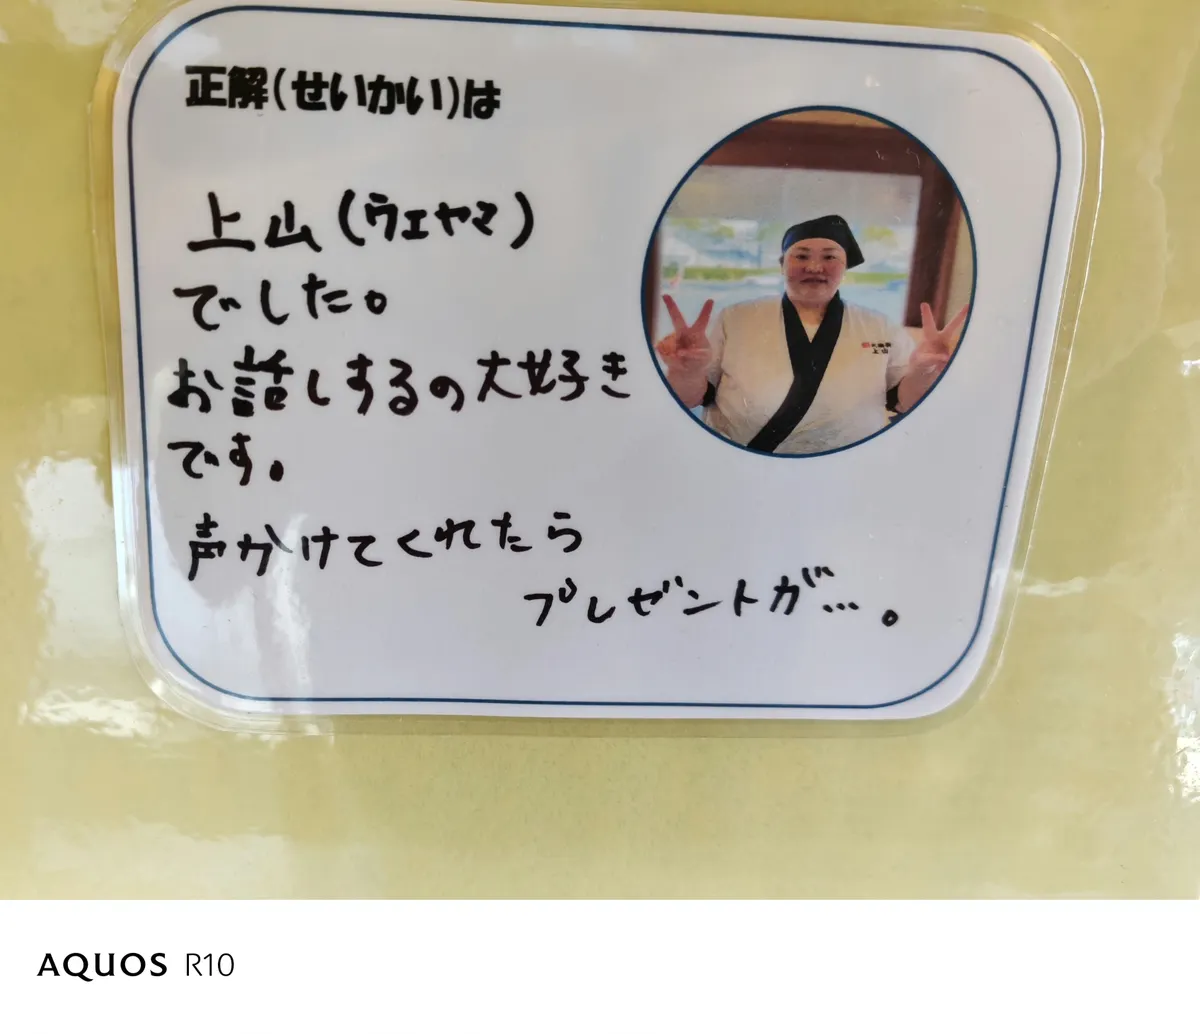 正解(せいかい)は
上山(ウエヤマ)
でした。
お話しするの大好き
です。
声かけてくれたら
プレゼントが…。
上山
AQUOS R10